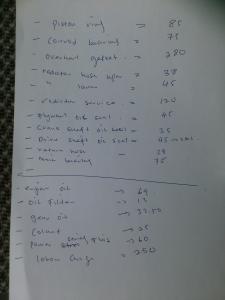 - Piston ring = 85
- Conrod bearing = 75
- overhaul gasket = 280
- radiator hose upper = 38
- " lower = 45
- radiator service = 120
- flywheel oil seal = 45
- Crank shaft oil seal = 35
- Drive shaft oil seal = 45
- return hose = 28
- bearing = 75
- engine oil → 69
- oil filter → 13
- gear oil → 37.50
- Colant → 25
- power → 60
- labour Charge = 250